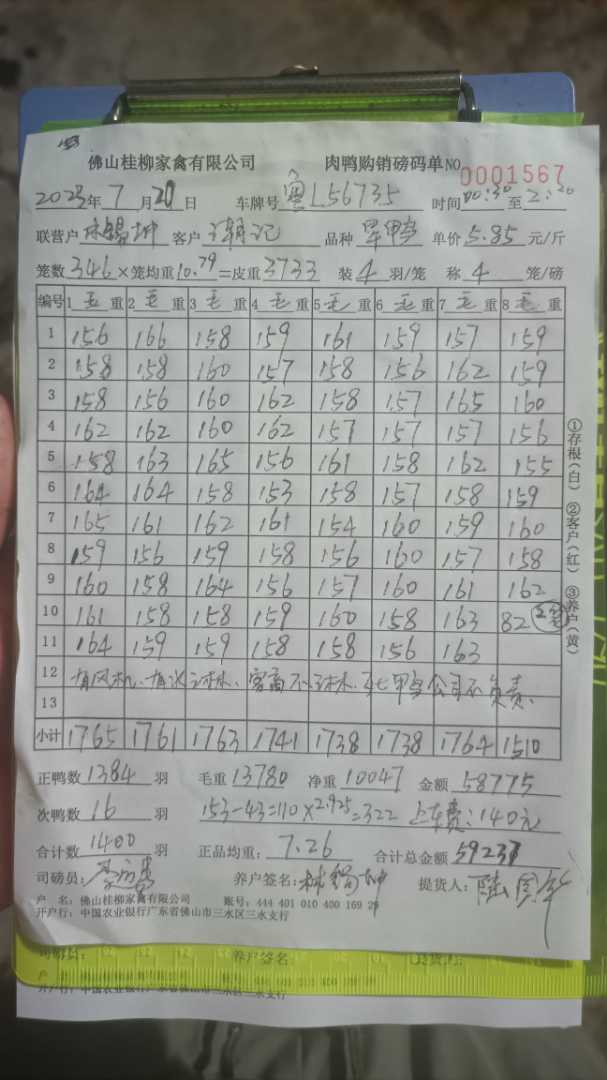 佛山桂柳家禽有限公司 肉鸭购销磅码单 NO 0001567
2023年 7月20日 车牌号 粤L56735 时间00:30至2:20
联营户 林锡坤 客户 潮记 品种 旱鸭 单价 5.85 元/斤
笼数 346 ×笼均重 10.79 =皮重 3733 装 4 羽/笼 称 4 笼/磅
编号 1 毛 重 2 毛 重 3 毛 重 4 毛 重 5 毛 重 6 毛 重 7 毛 重 8 毛 重
1 156 166 158 159 161 159 157 159
2 158 158 160 157 158 156 162 159
3 158 156 160 162 158 157 165 160
4 162 162 160 162 157 157 157 156
5 158 163 165 156 161 158 162 155
6 164 164 158 153 158 157 158 159
7 165 161 162 161 154 160 159 160
8 159 156 159 158 156 160 157 158
9 160 158 164 156 157 160 161 162
10 161 158 158 159 160 158 163 82
11 164 159 159 158 158 156 163
12 有风机、有水淋、客商不淋、死鸭公司不负责、
13
小计 1765 1761 1763 1741 1738 1738 1764 1510
①存根(白) ②客户(红) ③养户(黄)
正鸭数 1384 羽 毛重 13780 净重 10047 金额 58775
次鸭数 16 羽 153-43=110×2.925=322 上车费:140元
合计数 1400 羽 正品均重: 7.26 合计总金额 59237
司磅员: 养户签名: 林锡坤 提货人:
户 名:佛山桂柳家禽有限公司 账号:444 401 010 400 169 29
开户行:中国农业银行广东省佛山市三水区三水支行
司磅员: 养户签名
开户行:中国农业银行广东省佛山市三水区三水支行